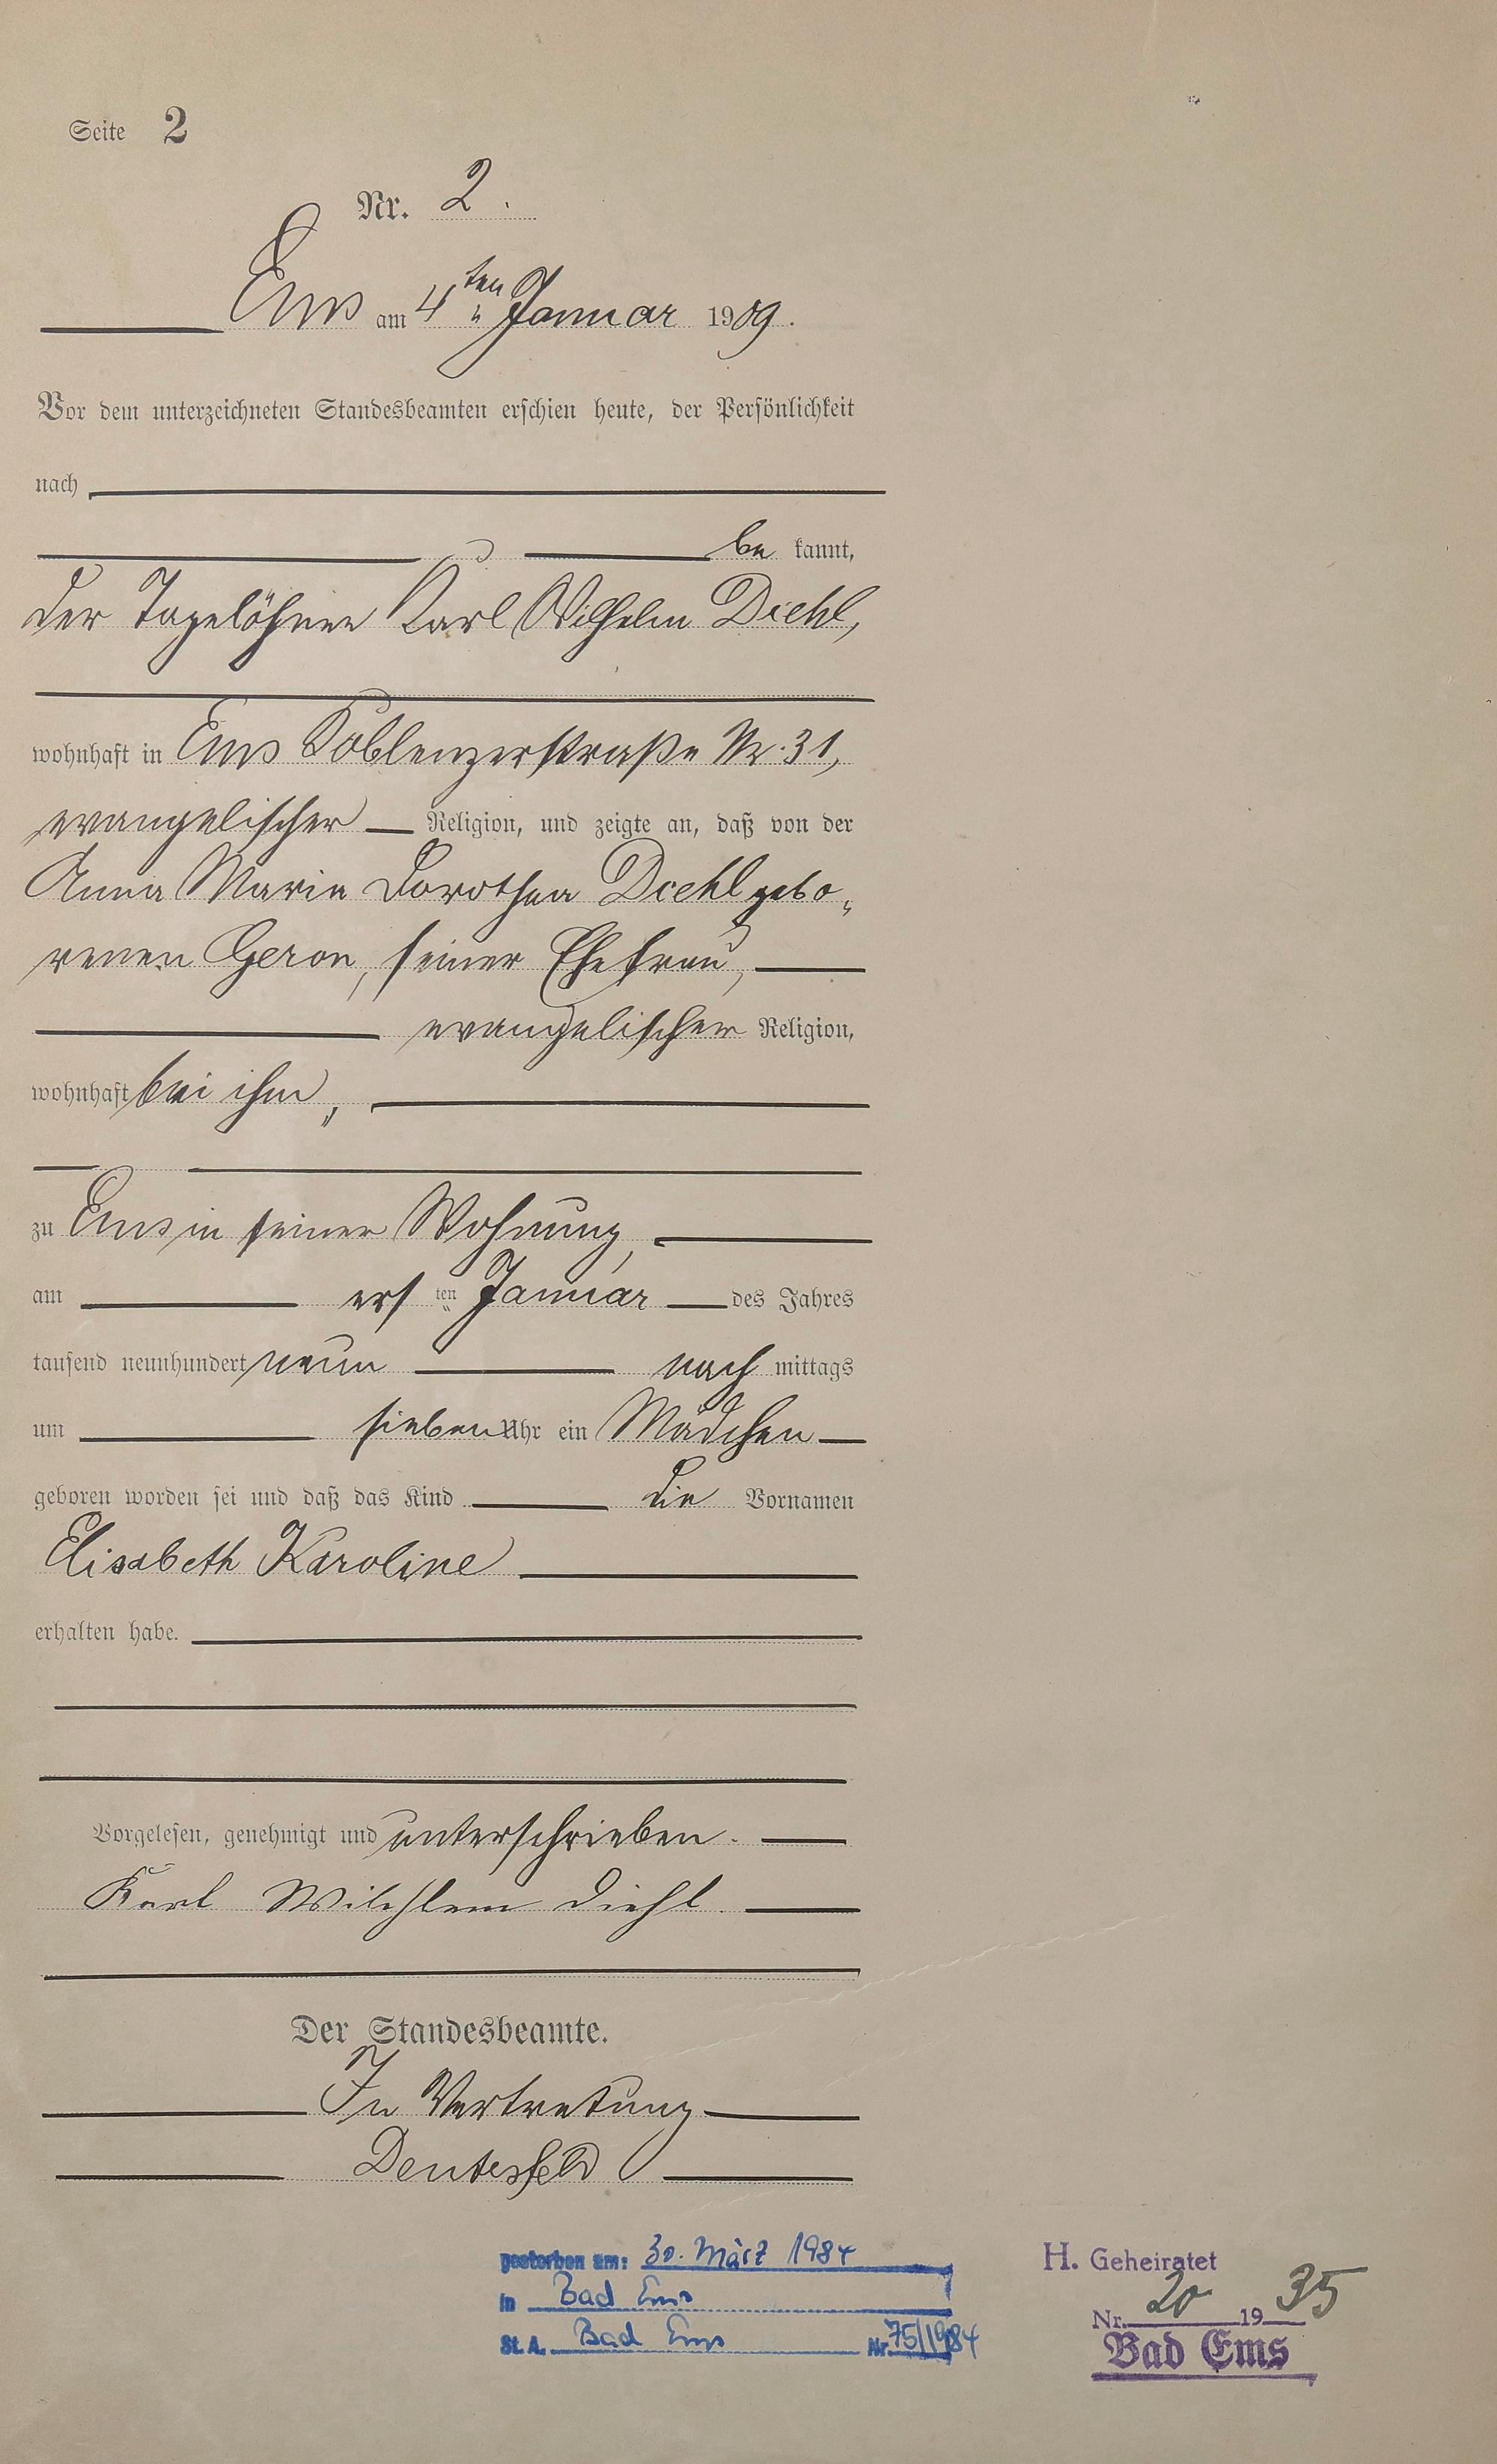 Seite 2
Nr. 2.
Ems am 4ten Januar 1909.
Vor dem unterzeichneten Standesbeamten erschien heute, der Persönlichkeit
nach
be kannt,
der Tagelöhner Karl Wilhelm Diehl,
wohnhaft in Ems Koblenzerstraße Nr. 31,
evangelischer Religion, und zeigte an, daß von der
Anna Maria Dorothea Diehl gebo„
renen Geron, seiner Ehefrau,
evangelischer Religion,
wohnhaft bei ihm,
zu Ems in seiner Wohnung,
am ersten Januar des Jahres
tausend neunhundert neun nach mittags
um sieben Uhr ein Mädchen
geboren worden sei und daß das Kind die Vornamen
Elisabeth Karoline
erhalten habe.
Vorgelesen, genehmigt und unterschrieben.
Karl Wilhlem Diehl.
Der Standesbeamte.
In Vertretung
Deutesfeld
gestorben am: 30. März 1984
in Bad Ems
St. A. Bad Ems Nr. 75/1984
H. Geheiratet
Nr. 20 1935
Bad Ems